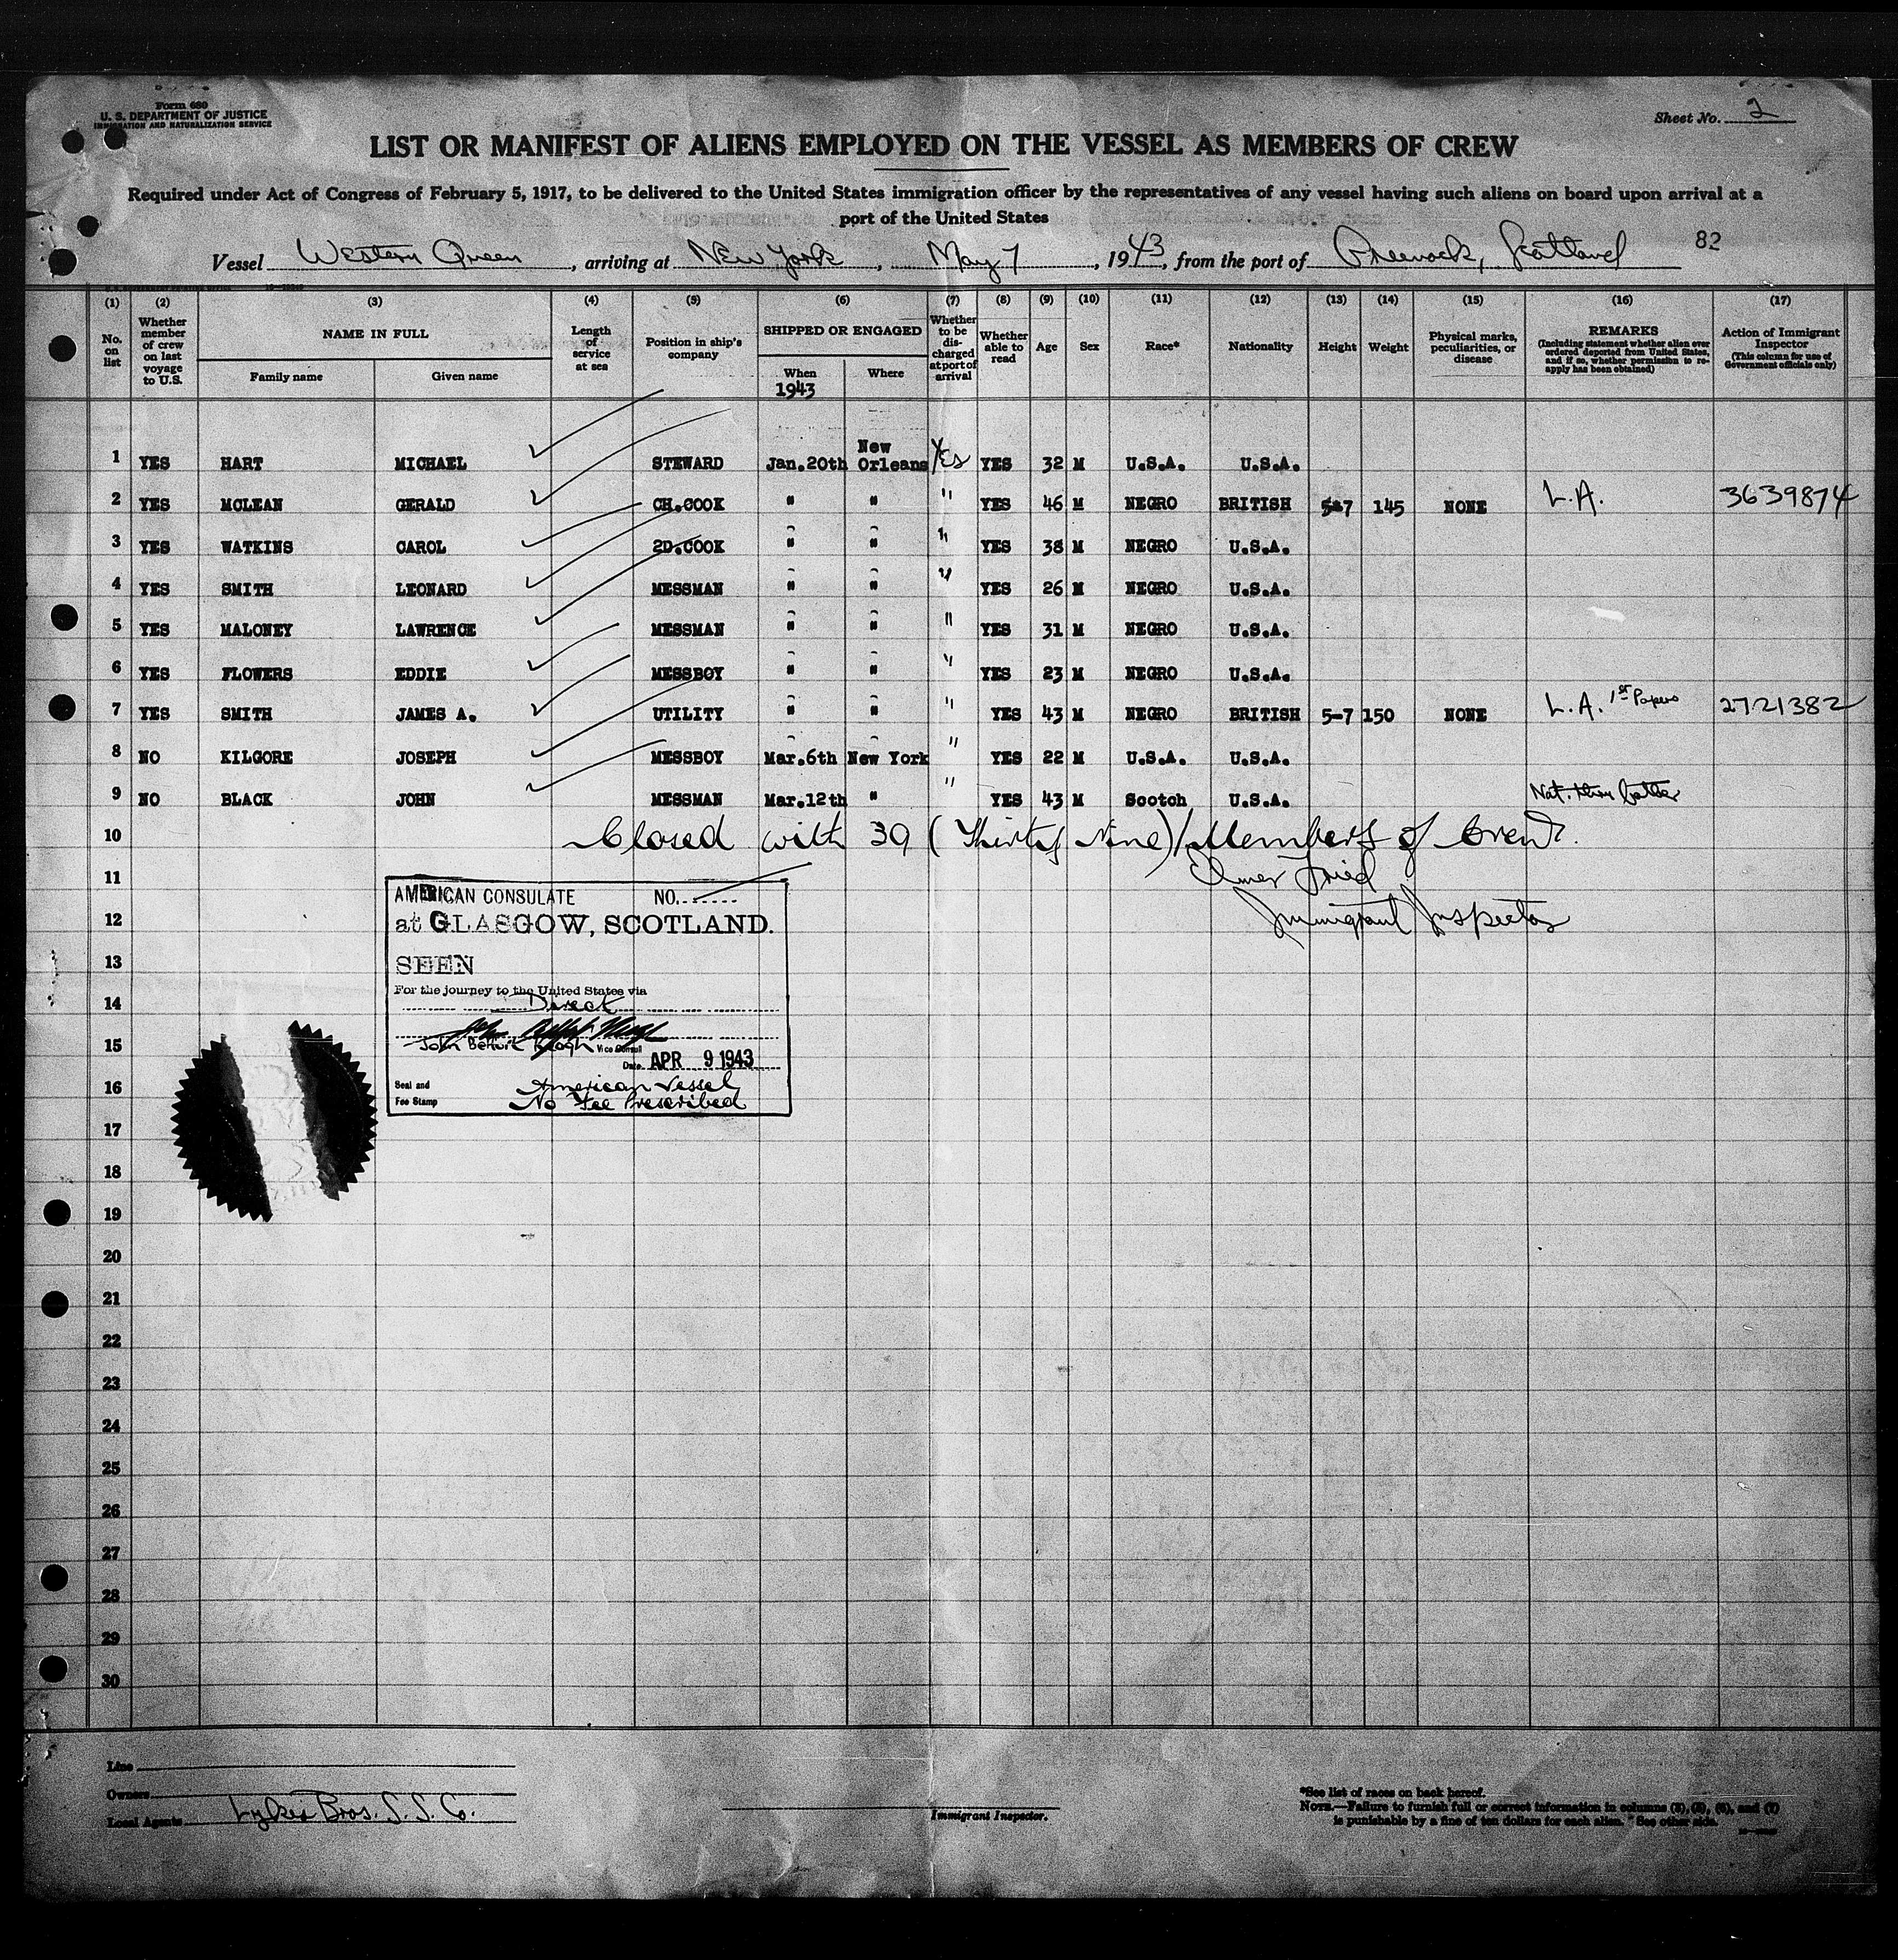 Form 680
U. S. DEPARTMENT OF JUSTICE
IMMIGRATION AND NATURALIZATION SERVICE
Sheet No. 2
LIST OR MANIFEST OF ALIENS EMPLOYED ON THE VESSEL AS MEMBERS OF CREW
Required under Act of Congress of February 5, 1917, to be delivered to the United States immigration officer by the representatives of any vessel having such aliens on board upon arrival at a
port of the United States
82
Vessel Western Queen, arriving at New York, May 7, 1943, from the port of Greenock, Scotland
(1) (2) (3) (4) (5) (6) (7) (8) (9) (10) (11) (12) (13) (14) (15) (16) (17)
No. on list
Whether member of crew on last voyage to U.S.
NAME IN FULL
Family name
Given name
Length of service at sea
Position in ship's company
SHIPPED OR ENGAGED
When
1943
Where
Whether to be discharged at port of arrival
Whether able to read
Age
Sex
Race*
Nationality
Height
Weight
Physical marks, peculiarities, or disease
REMARKS
(Including statement whether alien ever ordered deported from United States, and if so, whether permission to reapply has been obtained)
Action of Immigrant Inspector
(This column for use of Government officials only)
1 YES HART MICHAEL STEWARD Jan.20th New Orleans Yes YES 32 M U.S.A. U.S.A.
2 YES MCLEAN GERALD CH.COOK " " " YES 46 M NEGRO BRITISH 5-7 145 NONE L.A. 3639874
3 YES WATKINS CAROL 2D.COOK " " " YES 38 M NEGRO U.S.A.
4 YES SMITH LEONARD MESSMAN " " " YES 26 M NEGRO U.S.A.
5 YES MALONEY LAWRENCE MESSMAN " " " YES 31 M NEGRO U.S.A.
6 YES FLOWERS EDDIE MESSBOY " " " YES 23 M NEGRO U.S.A.
7 YES SMITH JAMES A. UTILITY " " " YES 43 M NEGRO BRITISH 5-7 150 NONE L.A. 1st Papers 2721382
8 NO KILGORE JOSEPH MESSBOY Mar.6th New York " YES 22 M U.S.A. U.S.A.
9 NO BLACK JOHN MESSMAN Mar.12th " " YES 43 M Scotch U.S.A. Nat. thru father
10 Closed with 39 (Thirty Nine) Members of Crew.
11 Elmer Fried
12 Immigrant Inspector
13
14
15
16
17
18
19
20
21
22
23
24
25
26
27
28
29
30
AMERICAN CONSULATE NO.
at GLASGOW, SCOTLAND.
SEEN
For the journey to the United States via
Direct
John Keogh Vice Consul
Date APR 9 1943
Seal and American Vessel
Fee Stamp No Fee Prescribed
Line
Owners
Local Agents Lykes Bros. S. S. Co.
Immigrant Inspector.
*See list of races on back hereof.
NOTE.—Failure to furnish full or correct information in columns (3), (5), (6), and (7)
is punishable by a fine of ten dollars for each alien. See other side.